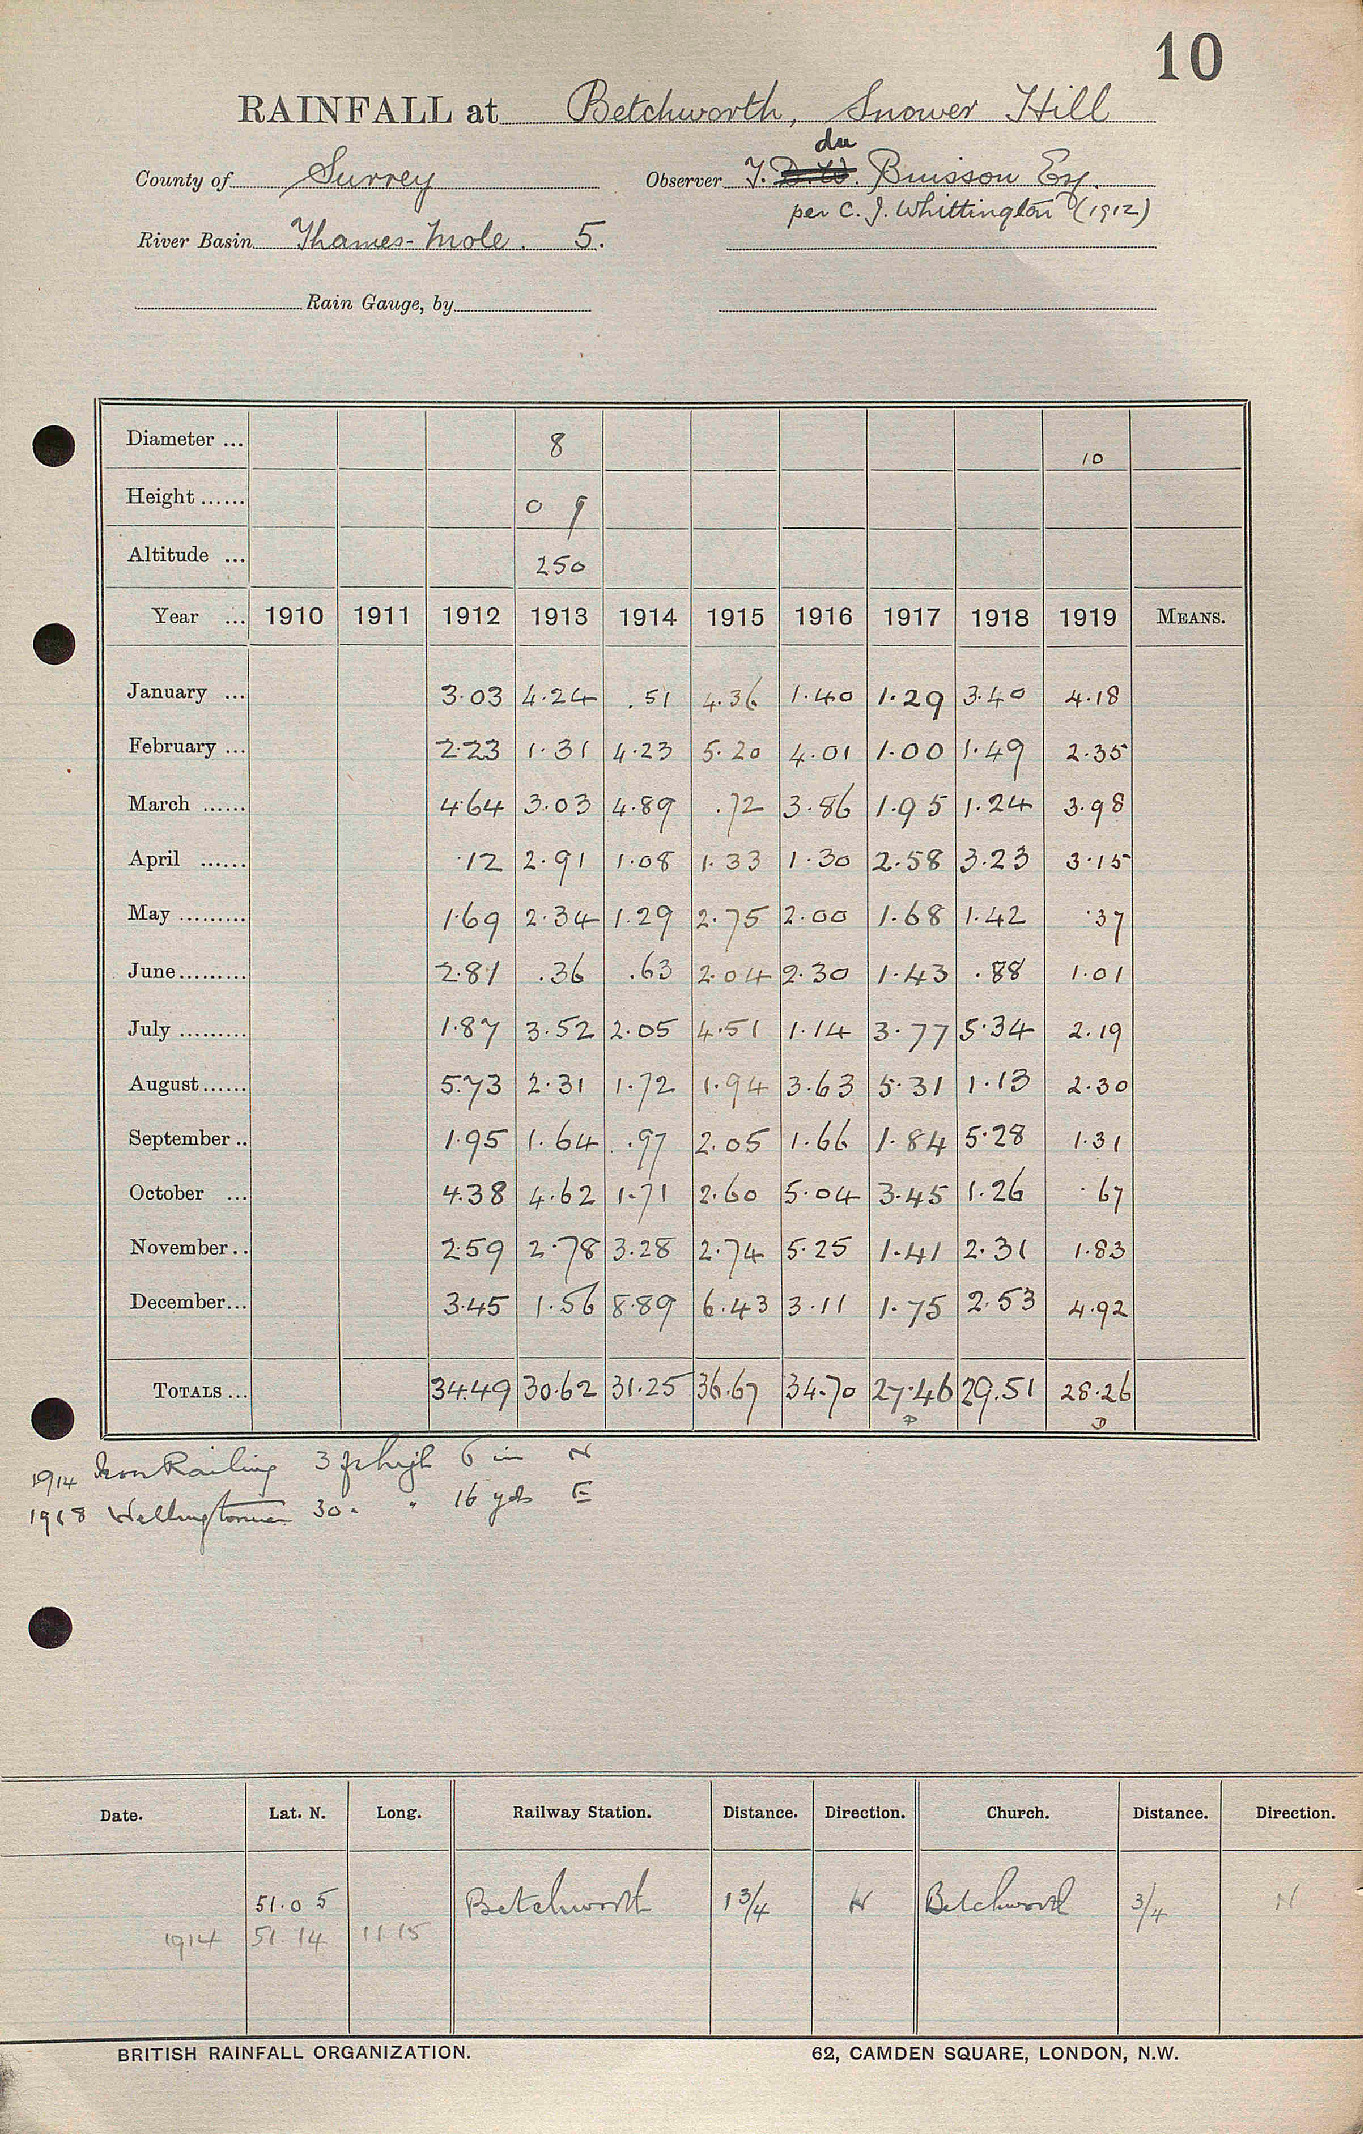 10
RAINFALL at Betchworth, Snower Hill
du
County of Surrey Observer T. D.W. Buisson Esq.
per C. J. Whittington (1912)
River Basin Thames-Mole. 5.
Rain Gauge, by
Diameter ... 8 10
Height ...... 0 9
Altitude ... 250
Year ... 1910 1911 1912 1913 1914 1915 1916 1917 1918 1919 MEANS.
January ... 3.03 4.24 .51 4.36 1.40 1.29 3.40 4.18
February ... 2.23 1.31 4.23 5.20 4.01 1.00 1.49 2.35
March ...... 4.64 3.03 4.89 .72 3.86 1.95 1.24 3.98
April ...... .12 2.91 1.08 1.33 1.30 2.58 3.23 3.15
May ......... 1.69 2.34 1.29 2.75 2.00 1.68 1.42 .37
June......... 2.81 .36 .63 2.04 2.30 1.43 .88 1.01
July ......... 1.87 3.52 2.05 4.51 1.14 3.77 5.34 2.19
August...... 5.73 2.31 1.72 1.94 3.63 5.31 1.13 2.30
September .. 1.95 1.64 .97 2.05 1.66 1.84 5.28 1.31
October ... 4.38 4.62 1.71 2.60 5.04 3.45 1.26 .67
November.. 2.59 2.78 3.28 2.74 5.25 1.41 2.31 1.83
December... 3.45 1.56 8.89 6.43 3.11 1.75 2.53 4.92
TOTALS ... 34.49 30.62 31.25 36.67 34.70 27.46 29.51 28.26
D D
1914 Iron Railing 3 ft high 6 in N
1918 Wellingtonia 30 " " 16 yds E
Date. Lat. N. Long. Railway Station. Distance. Direction. Church. Distance. Direction.
51.0 5 Betchworth 1 3/4 N Betchworth 3/4 N
1914 51 14 11 15
BRITISH RAINFALL ORGANIZATION. 62, CAMDEN SQUARE, LONDON, N.W.